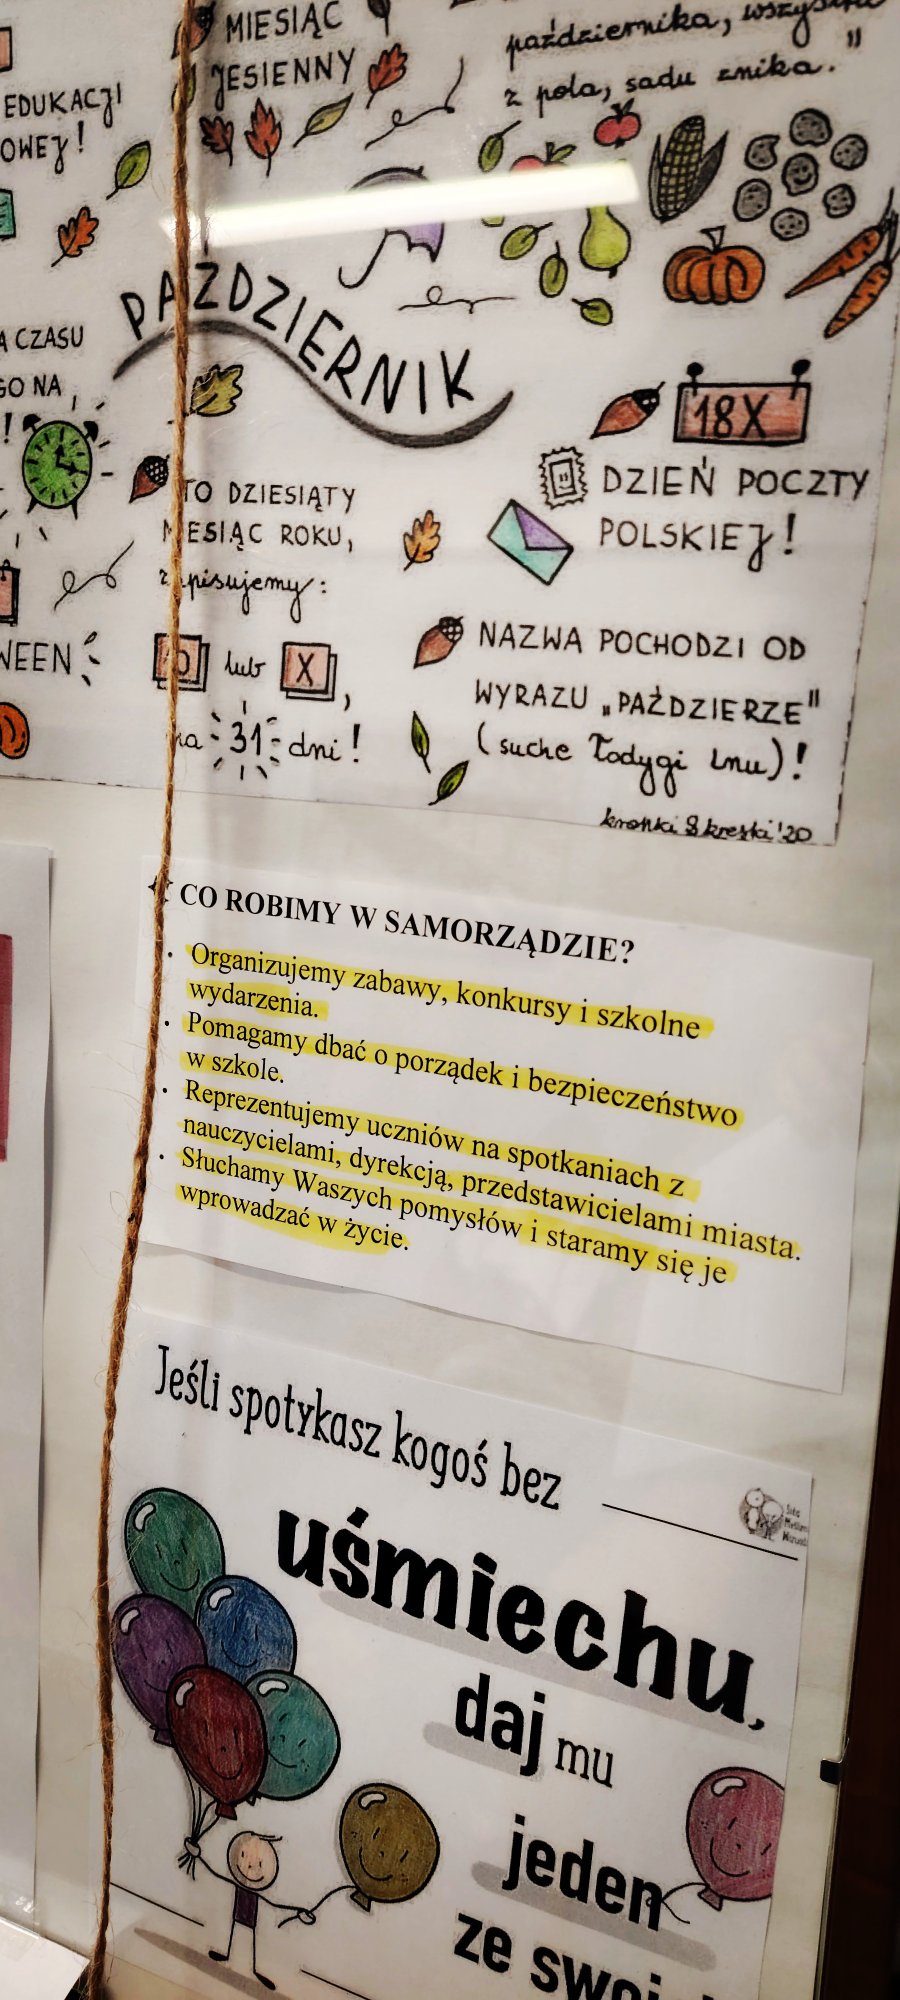 MIESIĄC
JESIENNY
października,
z pola, sadu znika."
EDUKACJI
OWEJ!
PAŹDZIERNIK
A CZASU
GO NA
!
18X
DZIEŃ POCZTY
POLSKIEJ!
TO DZIESIĄTY
MIESIĄC ROKU,
zapisujemy:
lub X,
ma 31 dni!
WEEN
NAZWA POCHODZI OD
WYRAZU „PAŹDZIERZE"
(suche łodygi lnu)!
kropki & kreski '20
CO ROBIMY W SAMORZĄDZIE?
· Organizujemy zabawy, konkursy i szkolne
wydarzenia.
· Pomagamy dbać o porządek i bezpieczeństwo
w szkole.
· Reprezentujemy uczniów na spotkaniach z
nauczycielami, dyrekcją, przedstawicielami miasta.
· Słuchamy Waszych pomysłów i staramy się je
wprowadzać w życie.
Jeśli spotykasz kogoś bez
uśmiechu,
daj mu
jeden
ze